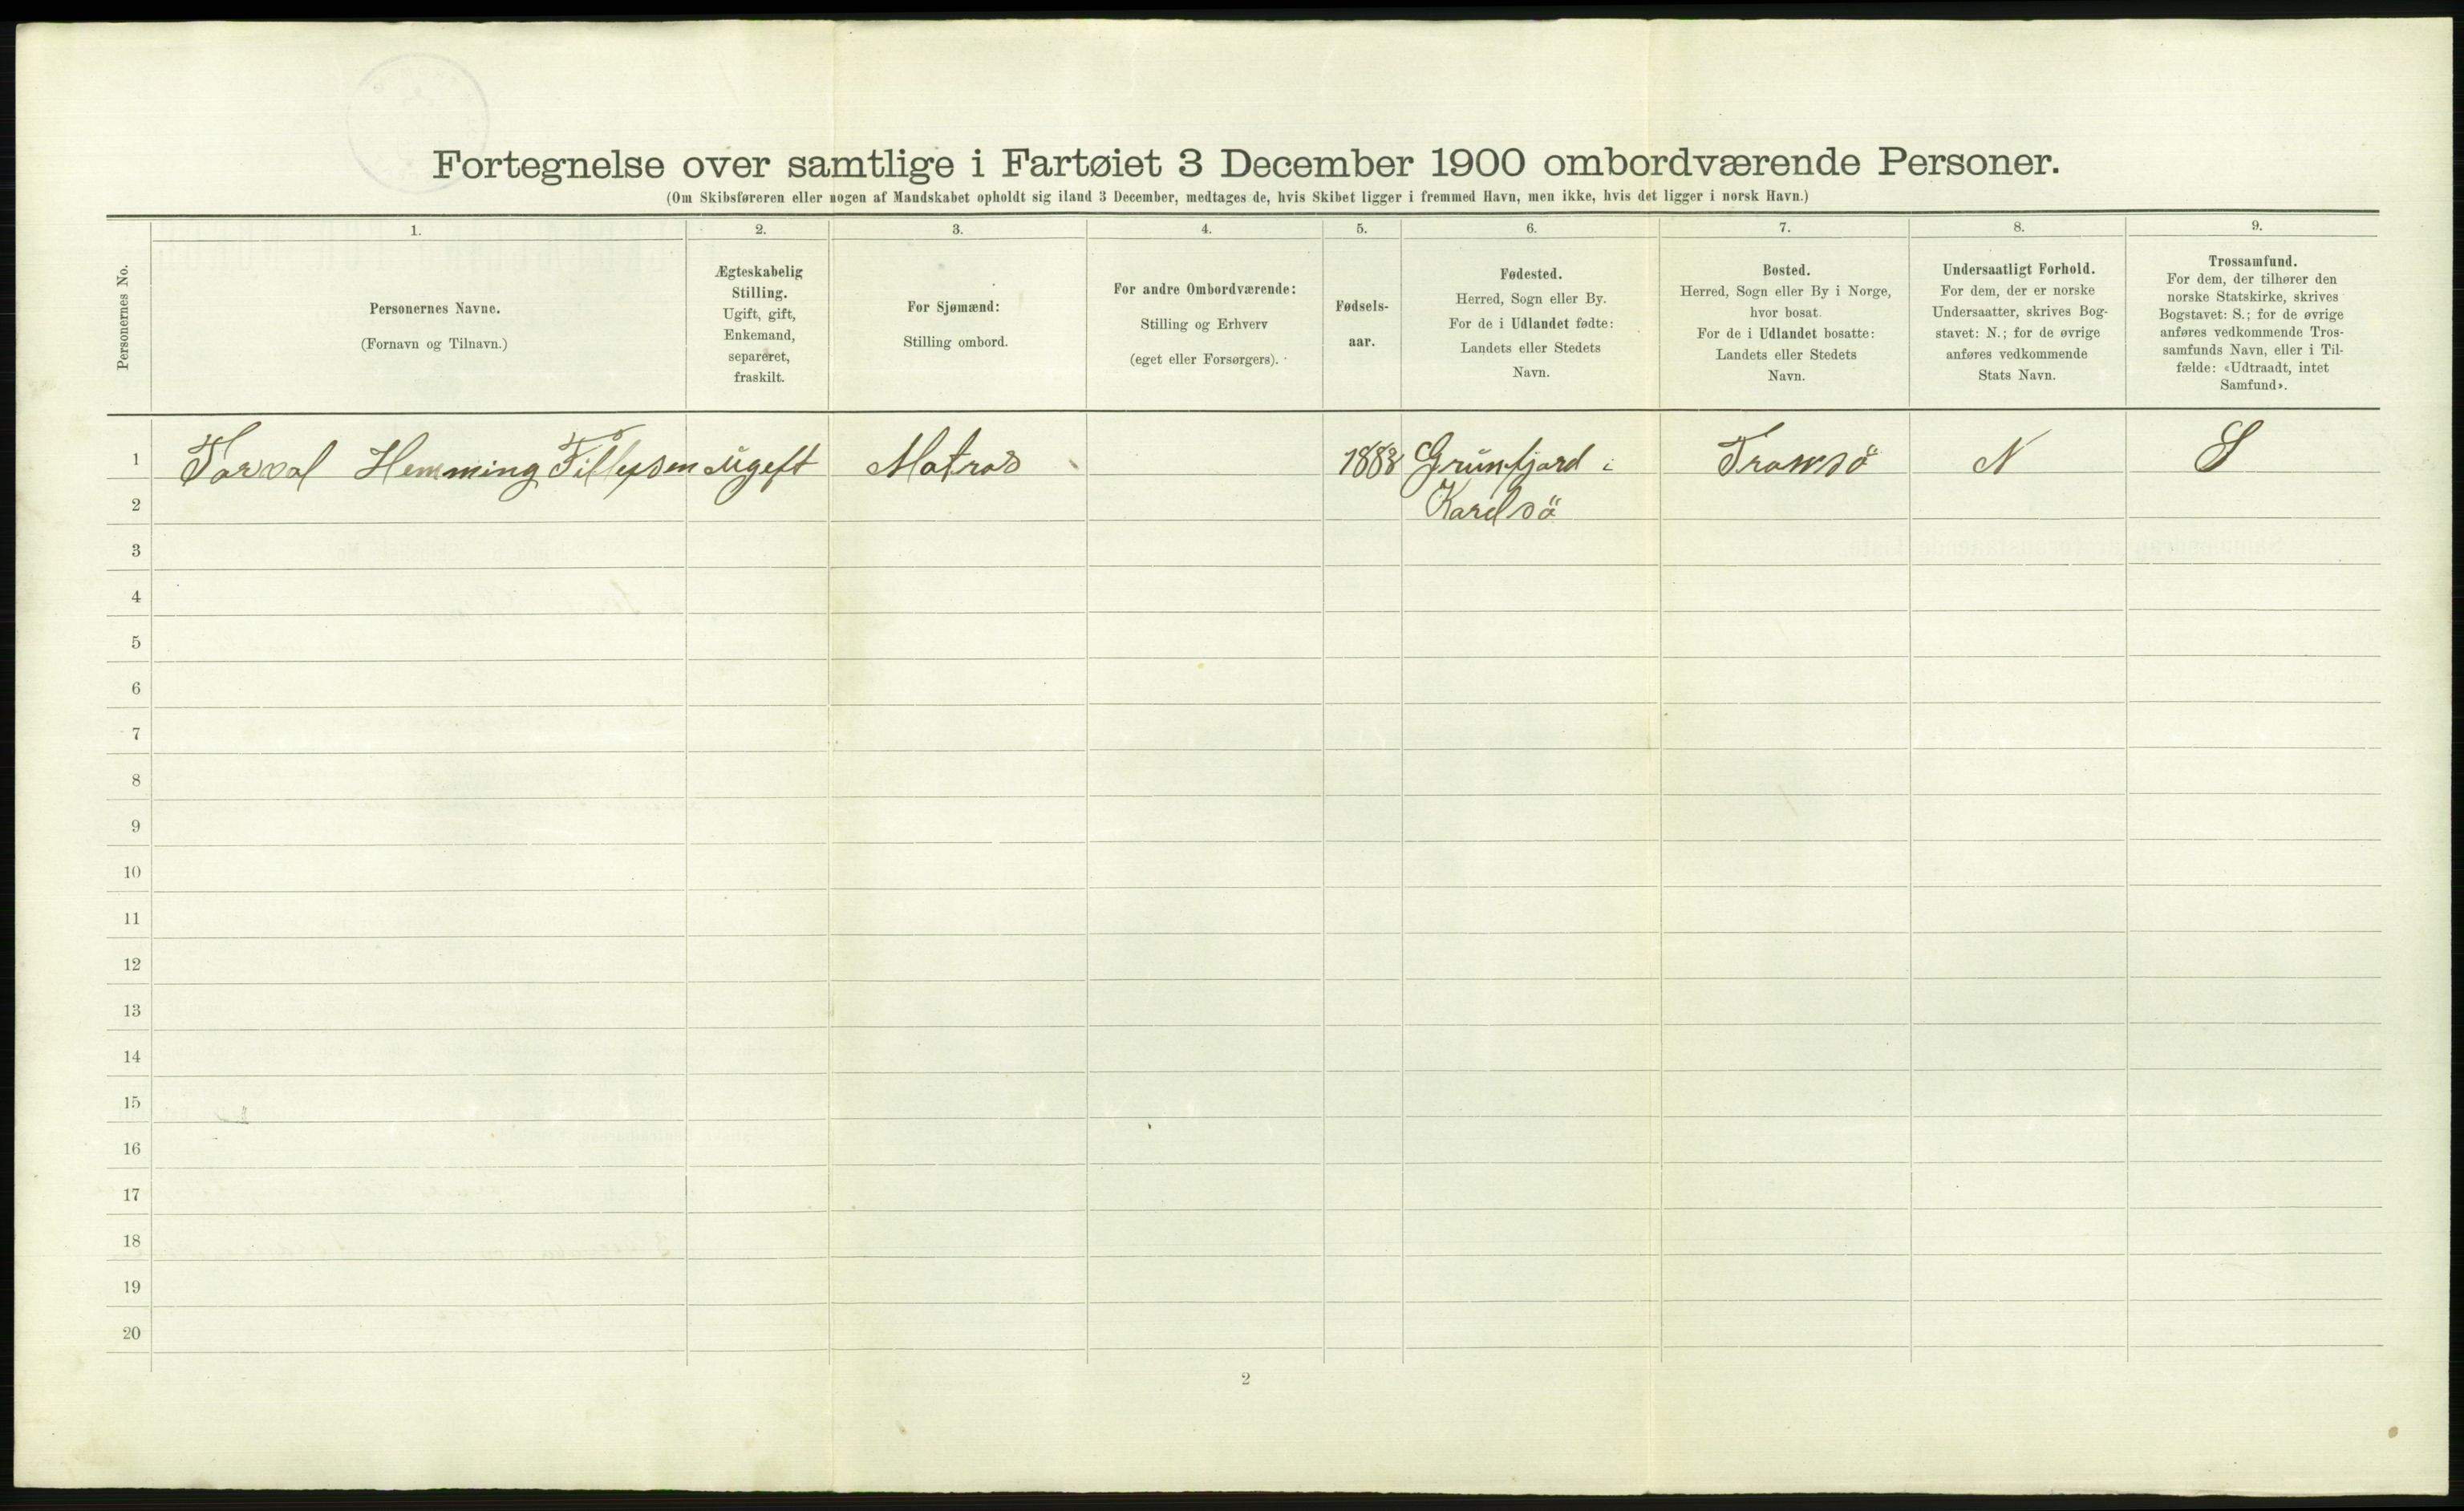 Fortegnelse over samtlige i Fartøiet 3 December 1900 ombordværende Personer.
(Om Skibsføreren eller nogen af Mandskabet opholdt sig iland 3 December, medtages de, hvis Skibet ligger i fremmed Havn, men ikke, hvis det ligger i norsk Havn.)
Personernes No.
1.
Personernes Navne.
(Fornavn og Tilnavn.)
2.
Ægteskabelig
Stilling.
Ugift, gift,
Enkemand,
separeret,
fraskilt.
3.
For Sjømænd:
Stilling ombord.
4.
For andre Ombordværende:
Stilling og Erhverv
(eget eller Forsørgers).
5.
Fødsels-
aar.
6.
Fødested.
Herred, Sogn eller By.
For de i Udlandet fødte:
Landets eller Stedets
Navn.
7.
Bosted.
Herred, Sogn eller By i Norge,
hvor bosat.
For de i Udlandet bosatte:
Landets eller Stedets
Navn.
8.
Undersaatligt Forhold.
For dem, der er norske
Undersaatter, skrives Bog-
stavet: N.; for de øvrige
anføres vedkommende
Stats Navn.
9.
Trossamfund.
For dem, der tilhører den
norske Statskirke, skrives
Bogstavet: S.; for de øvrige
anføres vedkommende Tros-
samfunds Navn, eller i Til-
fælde: «Udtraadt, intet
Samfund».
1 Torval Hemming ugeft Matros Grunfjord i Tromsö N S
2 Karelsö
3
4
5
6
7
8
9
10
11
12
13
14
15
16
17
18
19
20
2